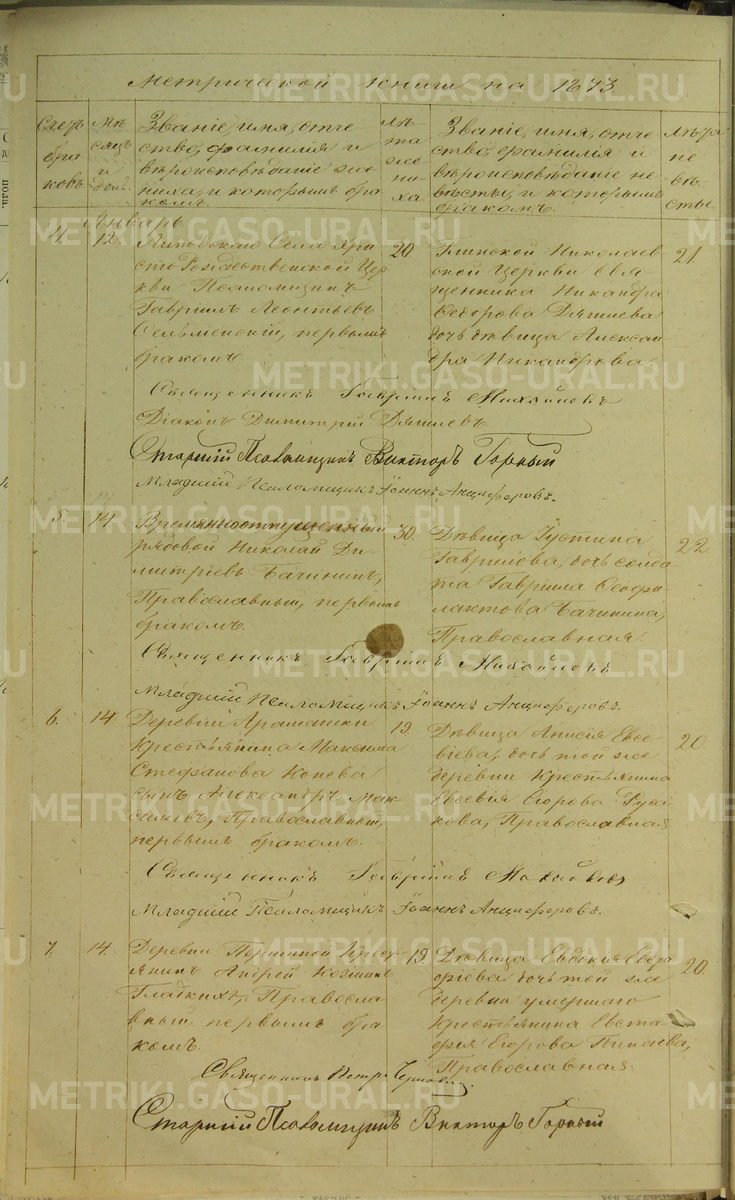 Метрической книги на 1873
Счетъ браковъ
Мѣсяцъ и день
Званіе, имя, отчество, фамилія и вѣроисповѣданіе жениха, и которымъ бракомъ.
Лѣта жениха
Званіе, имя, отчество, фамилія и вѣроисповѣданіе невѣсты, и которымъ бракомъ.
Лѣта невѣсты
Январь
4. 12.
Села Хри
сто Рождественской Цер
кви Псаломщикъ
Гавріилъ Леонтьевъ
первымъ
бракомъ.
20
Глинской Николаев
ской Церкви Свя
щенника Никандра
Ѳедорова Дягилева
дочь дѣвица Алексан
дра Никандрова.
21
Священникъ Гавріилъ Михайловъ
Діаконъ Димитрій Дягилевъ.
Старшій Псаломщикъ Викторъ Горный
Младшій Псаломщикъ Іоаннъ Анциферовъ.
5. 14.
Временноотпущенный
рядовой Николай Ди
митріевъ Бачининъ,
Православный, первымъ
бракомъ.
30.
Дѣвица Іустина
Гаврилова, дочь солда
та Гавріила Ѳеофи
лактова Бачинина,
Православная.
22
Священникъ Гавріилъ Михайловъ
Младшій Псаломщикъ Іоаннъ Анциферовъ.
6. 14.
Деревни Арамашки
Крестьянина Максима
Стефанова Копева
сынъ Александръ Мак
симовъ, Православный,
первымъ бракомъ.
19
Дѣвица Анисія Евсе
віева, дочь той же
деревни Крестьянина
Евсевія Егорова Руса
кова, Православная
20.
Священникъ Гавріилъ Михайловъ
Младшій Псаломщикъ Іоаннъ Анциферовъ.
7. 14.
Деревни Першиной Крест
янинъ Андрей Козминъ
Гладкихъ, Правосла
вный первымъ бра
комъ.
19
Дѣвица Евдокія Евста
фіева дочь той же
деревни умершаго
Крестьянина Евста
фія Егорова Минаева,
Православная.
20.
Священникъ Петръ
Старшій Псаломщикъ Викторъ Горный
METRIKI.GASO-URAL.RU